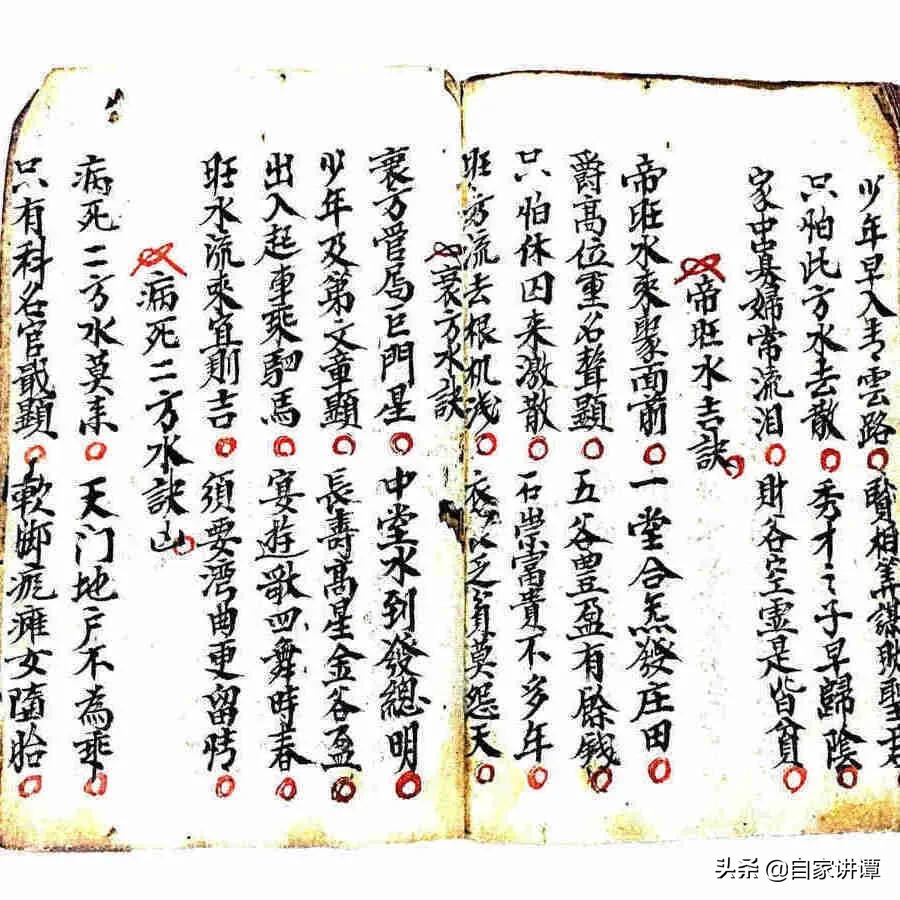 少年早入青雲路 賢相籌謀助聖君
只怕此方水去散 秀才之子早歸陰
家中寡婦常流泪 財谷空虛是皆貧
帝旺水吉訣
帝旺水來聚面前 一堂合炁發庄田
爵高位重名聲顯 五谷豊盈有餘錢
只怕休囚来激散 石崇富貴不多年
旺方流去根机浅 衣 之貧莫怨天
衰方水訣
衰方管局巨門星 中堂水到發總明
少年及第文童顯 長壽高星金谷盈
出入起車乘駟馬 宴遊歌四舞時春
旺水流來宜則吉 須要湾曲更留情
病死二方水訣凶
病死二方水莫來 天门地户不為乖
只有科名官職顯 軟脚瘋瘫女墮胎
头条 @自家讲谭